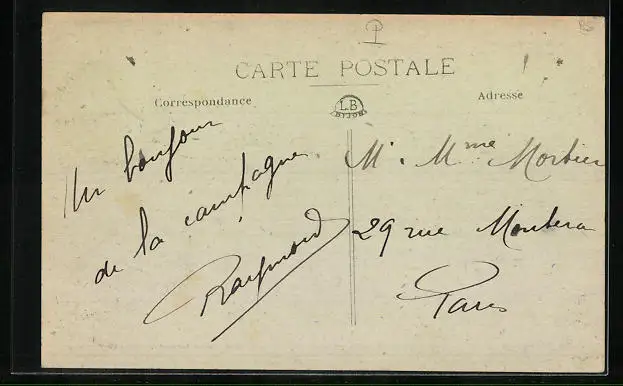 CARTE POSTALE
Correspondance
Adresse
L.B
DIJON
Un bonjour
de la campagne
Raymond
M. Mme Mortier
29 rue Montera
Paris